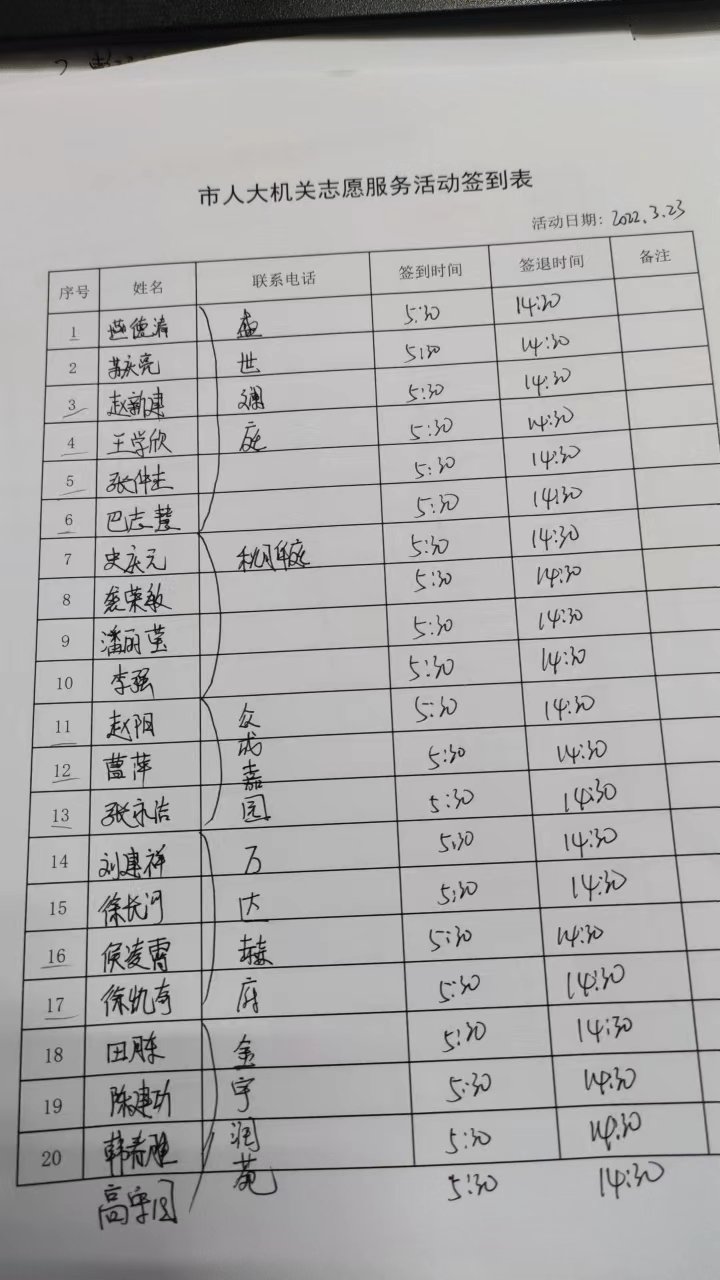 市人大机关志愿服务活动签到表
活动日期: 2022.3.23
序号 姓名 联系电话 签到时间 签退时间 备注
1 德涛 盛 5:30 14:30
2 苏庆亮 世 5:30 14:30
3 赵新建 澜 5:30 14:30
4 王学欣 庭 5:30 14:30
5 张伟杰 5:30 14:30
6 巴志慧 5:30 14:30
7 史庆元 秋月华庭 5:30 14:30
8 荣敏 5:30 14:30
9 潘丽莹 5:30 14:30
10 李强 5:30 14:30
11 赵阳 众 5:30 14:30
12 曹萍 成 5:30 14:30
13 张永洁 嘉园 5:30 14:30
14 刘建祥 万 5:30 14:30
15 徐长河 达 5:30 14:30
16 侯凌霄 赫 5:30 14:30
17 徐凯奇 府 5:30 14:30
18 田胜 金 5:30 14:30
19 陈建功 宇 5:30 14:30
20 韩春雕 润 5:30 14:30
高守国 苑 5:30 14:30